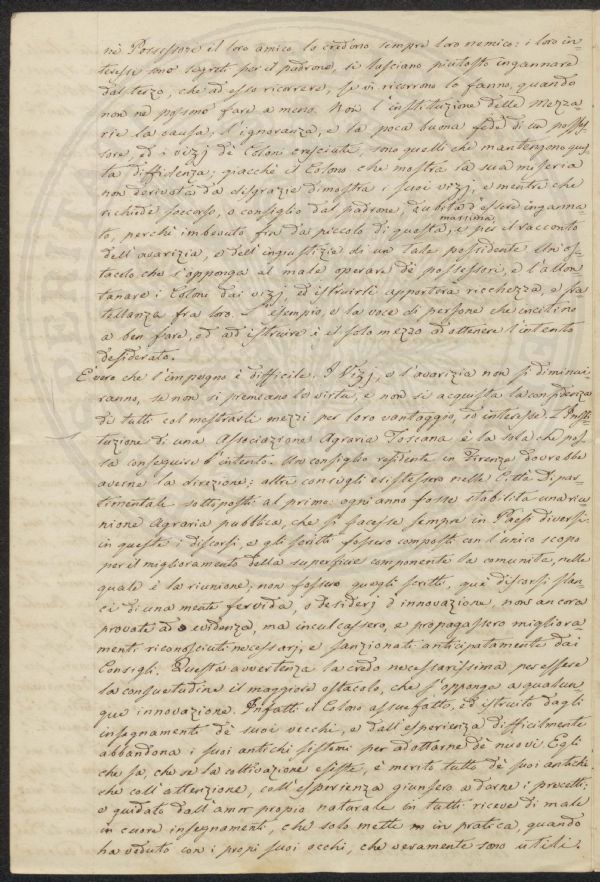 nè Possessore il loro amico, lo credono sempre loro nemico: i loro in-
teressi sono segreti per il padrone, si lasciano piutosto ingannare
dal terzo, che ad esso ricorrere, se vi ricorrono lo fanno, quando
non nè possono fare a meno. Non l'instituzione delle Mezza-
rie la causa, l'ignoranza, e la poca buona fede di un posses-
sore, ed i vizj dè Coloni cresciute, sono quelli che mantengono ques-
ta diffidenza; giacchè il Colono che mostra la sua miseria
non derivata da disgrazie dimostra i suoi vizj, e mentre che
richiede soccorso, o consiglio dal padrone, dubita d'essere inganna-
to, perchè imbevuto fin da piccolo di questa massima, e per il racconto
dell'avarizia, e dell'ingiustizia di un tale possidente. Un os-
tacolo che s'opponga al male operare dè possessori, e l'allon-
tanare i Coloni dai vizj, ed istruirli apporterà ricchezza, e fra-
tellanza fra loro. L'esempio, e la voce di persone che incitino
a ben fare, ed ad istruire è il solo mezzo ad ottenere l'intento
desiderato.
E vero che l'impegno è difficile. I Vizj, e l'avarizia non si diminui-
ranno, se non si premiano le virtù, e non si acquista la confidenza
de tutti col mostrarli mezzi per loro vantaggio, ed interesse. L'Insti-
tuzione di una Associazione Agraria Toscana è la sola che pos-
sa conseguire l'intento. Un consiglio residente in Firenze dovrebbe
averne la direzione; altri consigli esistessero nelle Città Dipar-
timentale sottoposti al primo: ogni anno fosse stabilita una riu-
nione Agraria pubblica, che si facesse sempre in Paesi diversi:
in queste i discorsi, e gli scritti fossero composti con l'unico scopo
per il miglioramento della superficie componente la comunità, nella
quale è la riunione; non fossero quegli scritti, què discorsi slan-
ci di una mente fervida, o desiderj d'innovazione, non ancora
provate ad evidenza, ma inculcassero, e propagassero migliora-
menti riconosciuti necessarj, e sanzionati anticipatamente dai
Consigli. Questa avvertenza la credo necessarissima per essere
la consuetudine il maggiore ostacolo, che s'opponga a qualun-
que innovazione. Infatti il Colono assuefatto, ed istruito dagli
insegnamenti dè suoi vecchi, e dall'esperienza difficilmente
abbandona i suoi antichi sistemi per adottarne dè nuovi. Egli
che sa, che se la coltivazione esiste, è merito tutto dè suoi antichi
che coll'attenzione, coll'esperienza giunsero a darne i precetti:
e guidato dall'amor propio naturale in tutti riceve di male
in cuore insegnamenti, che solo mette in pratica, quando
ha veduto con i propi suoi occhi, che veramente sono utili.